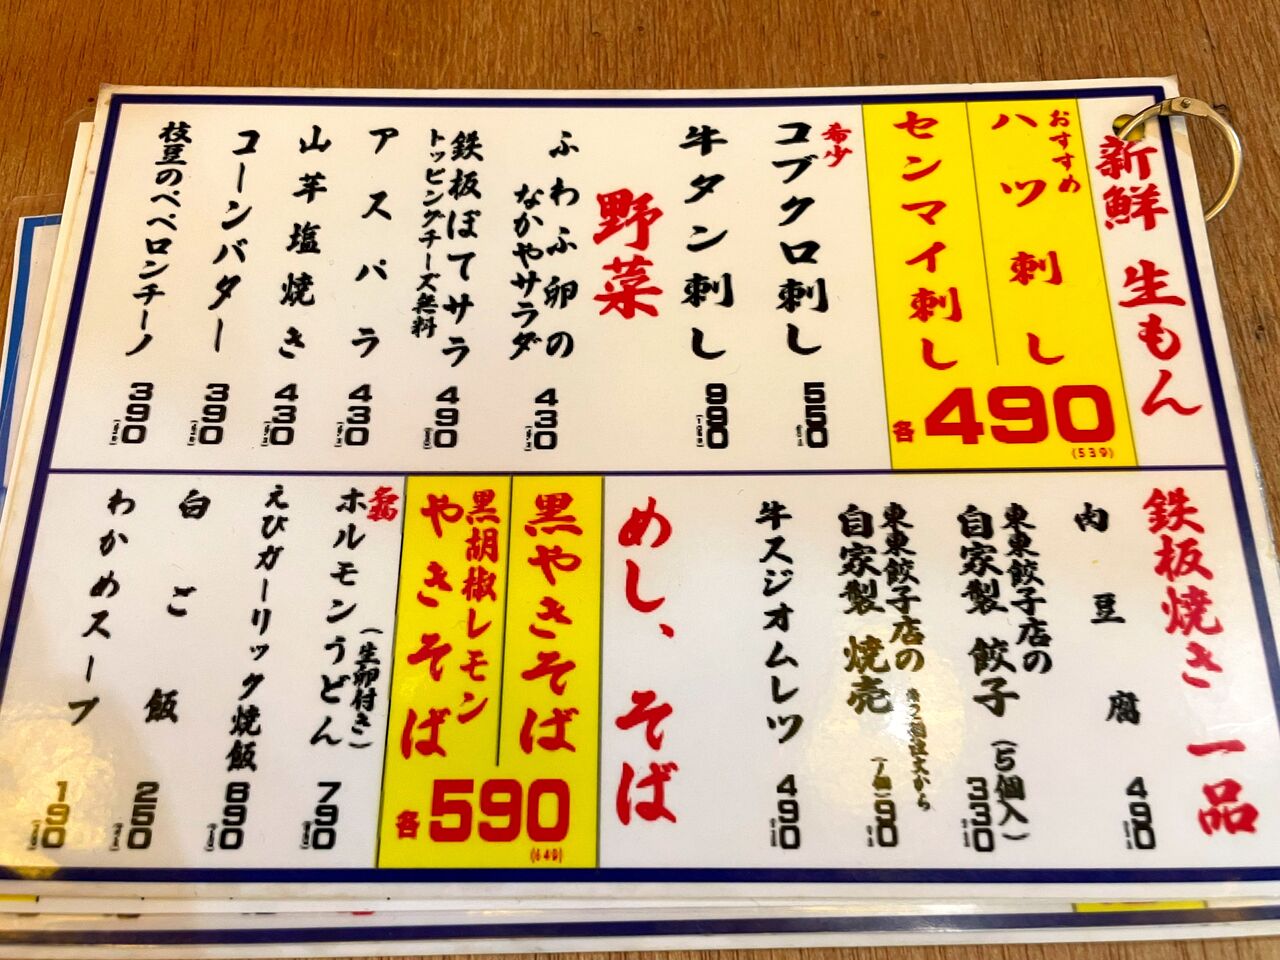 新鮮 生もん
おすすめ
ハツ刺し
センマイ刺し
各490
(539)
希少
コブクロ刺し
550
牛タン刺し
990
野菜
ふわふわ卵の
なかやサラダ
430
鉄板ぽてサラ
トッピングチーズ無料
490
アスパラ
430
山芋塩焼き
430
コーンバター
390
枝豆のペペロンチーノ
390
鉄板焼き 一品
肉豆腐
490
東東餃子店の
自家製 餃子
(5個入)
330
東東餃子店の
自家製 焼売
(1個)
90
牛スジオムレツ
490
めし、そば
黒やきそば
黒胡椒レモン
やきそば
各590
(649)
名物
ホルモンうどん
(生卵付き)
790
えびガーリック焼飯
690
白ご飯
250
わかめスープ
190